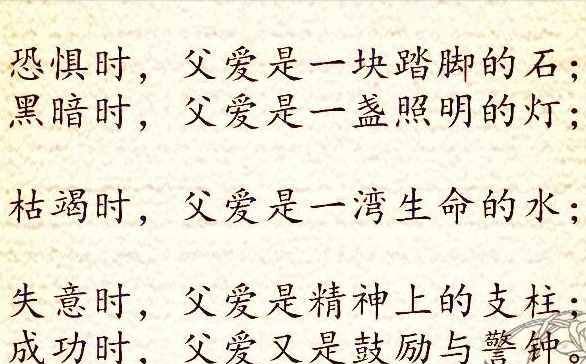 恐惧时，父爱是一块踏脚的石；
黑暗时，父爱是一盏照明的灯；
枯竭时，父爱是一湾生命的水；
失意时，父爱是精神上的支柱；
成功时，父爱又是鼓励与警钟。